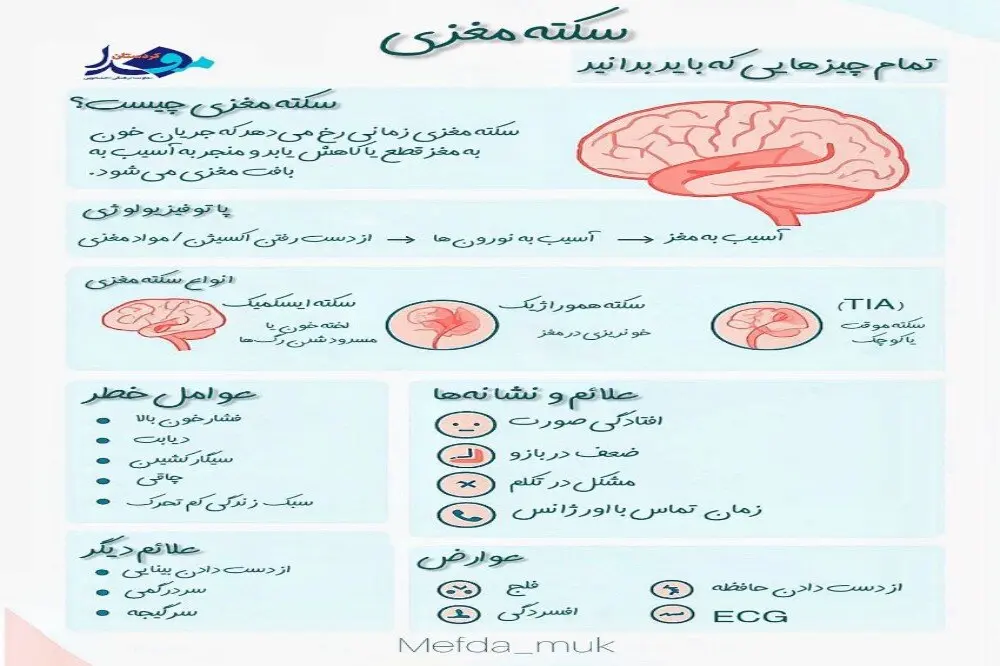 سکته مغزی
تمام چیزهایی که باید بدانید
کردستان
مفدا
سکته مغزی چیست؟
سکته مغزی زمانی رخ می دهد که جریان خون
به مغز قطع یا کاهش یابد و منجر به آسیب به
بافت مغزی می شود.
پاتوفیزیولوژی
آسیب به مغز → آسیب به نورون ها → از دست رفتن اکسیژن / مواد مغزی
انواع سکته مغزی
سکته ایسکمیک
لخته خون یا
مسدود شدن رگ ها
سکته هموراژیک
خونریزی در مغز
(TIA)
سکته موقت
یا کوچک
علائم و نشانه ها
افتادگی صورت
ضعف در بازو
مشکل در تکلم
زمان تماس با اورژانس
عوامل خطر
فشار خون بالا
دیابت
سیگار کشیدن
چاقی
سبک زندگی کم تحرک
علائم دیگر
از دست دادن بینایی
سردرگمی
سرگیجه
عوارض
فلج
افسردگی
از دست دادن حافظه
ECG
Mefda_muk